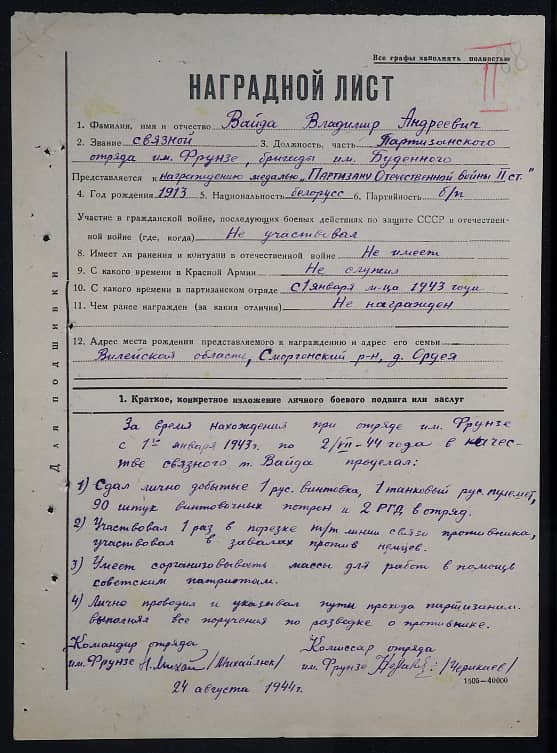 Все графы заполнять полностью
II 88
НАГРАДНОЙ ЛИСТ
1. Фамилия, имя и отчество Вайда Владимир Андреевич
2. Звание связной 3. Должность, часть Партизанского
отряда им. Фрунзе, бригады им. Буденного
Представляется к награждению медалью „Партизану Отечественной войны II ст."
4. Год рождения 1913 5. Национальность белорусс 6. Партийность б/п
Участие в гражданской войне, последующих боевых действиях по защите СССР и отечествен-
ной войне (где, когда) Не участвовал
8. Имеет ли ранения и контузии в отечественной войне Не имеет
9. С какого времени в Красной Армии Не служил
10. С какого времени в партизанском отряде с 1 января м-ца 1943 года
11. Чем ранее награжден (за какие отличия) Не награжден
12. Адрес места рождения представляемого к награждению и адрес его семьи
Вилейская область, Сморгонский р-н, д. Ордея
Для подшивки
1. Краткое, конкретное изложение личного боевого подвига или заслуг
За время нахождения при отряде им. Фрунзе
с 1го января 1943г. по 2/VII-44 года в качес-
тве связного т. Вайда проделал:
1) Сдал лично добытые 1 рус. винтовка, 1 танковый рус. пулемет,
90 штук винтовочных потрон и 2 РГД в отряд.
2) Участвовал 1 раз в порезке т/т линии связи противника,
участвовал в завалах против немцев.
3) Умеет сорганизовывать массы для работ в помощь
советским патриотам.
4) Лично проводил и указывал пути прохода партизанам.
выполнял все поручения по разведке о противнике.
Командир отряда Комиссар отряда
им. Фрунзе /Михайлюк/ им. Фрунзе /Черикаев/
24 августа 1944г.
1505—40000